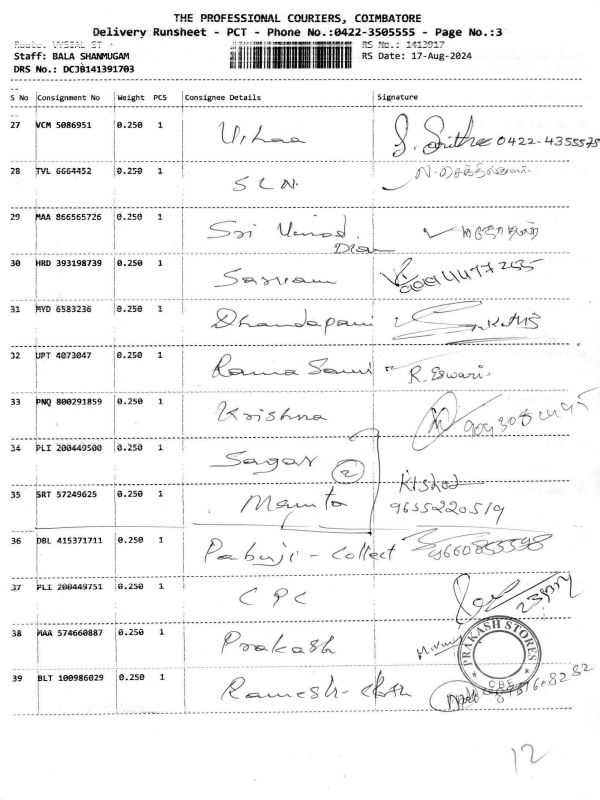 THE PROFESSIONAL COURIERS, COIMBATORE
Delivery Runsheet - PCT - Phone No.:0422-3505555 - Page No.:3
Route: VYSIAL ST RS No.: 1413917
Staff: BALA SHANMUGAM RS Date: 17-Aug-2024
DRS No.: DCJB141391703
S No Consignment No Weight PCS Consignee Details Signature
27 VCM 5086951 0.250 1 0422-4355575
28 TVL 6664452 0.250 1 SLN.
29 MAA 866565726 0.250 1 Sri
30 HRD 393198739 0.250 1
31 MYD 6583236 0.250 1 Dhandapani
32 UPT 4073047 0.250 1 Rama Sami R. Eswari.
33 PNQ 800291859 0.250 1 Krishna
34 PLI 200449500 0.250 1 Sagar 2
35 SRT 57249625 0.250 1 Mamta Kishor 9655220519
36 DBL 415371711 0.250 1 Pabuji - Collect
37 PLI 200449751 0.250 1 CPC
38 MAA 574660887 0.250 1 Prakash PRAKASH STORES CBE
39 BLT 100986029 0.250 1 Ramesh -
12